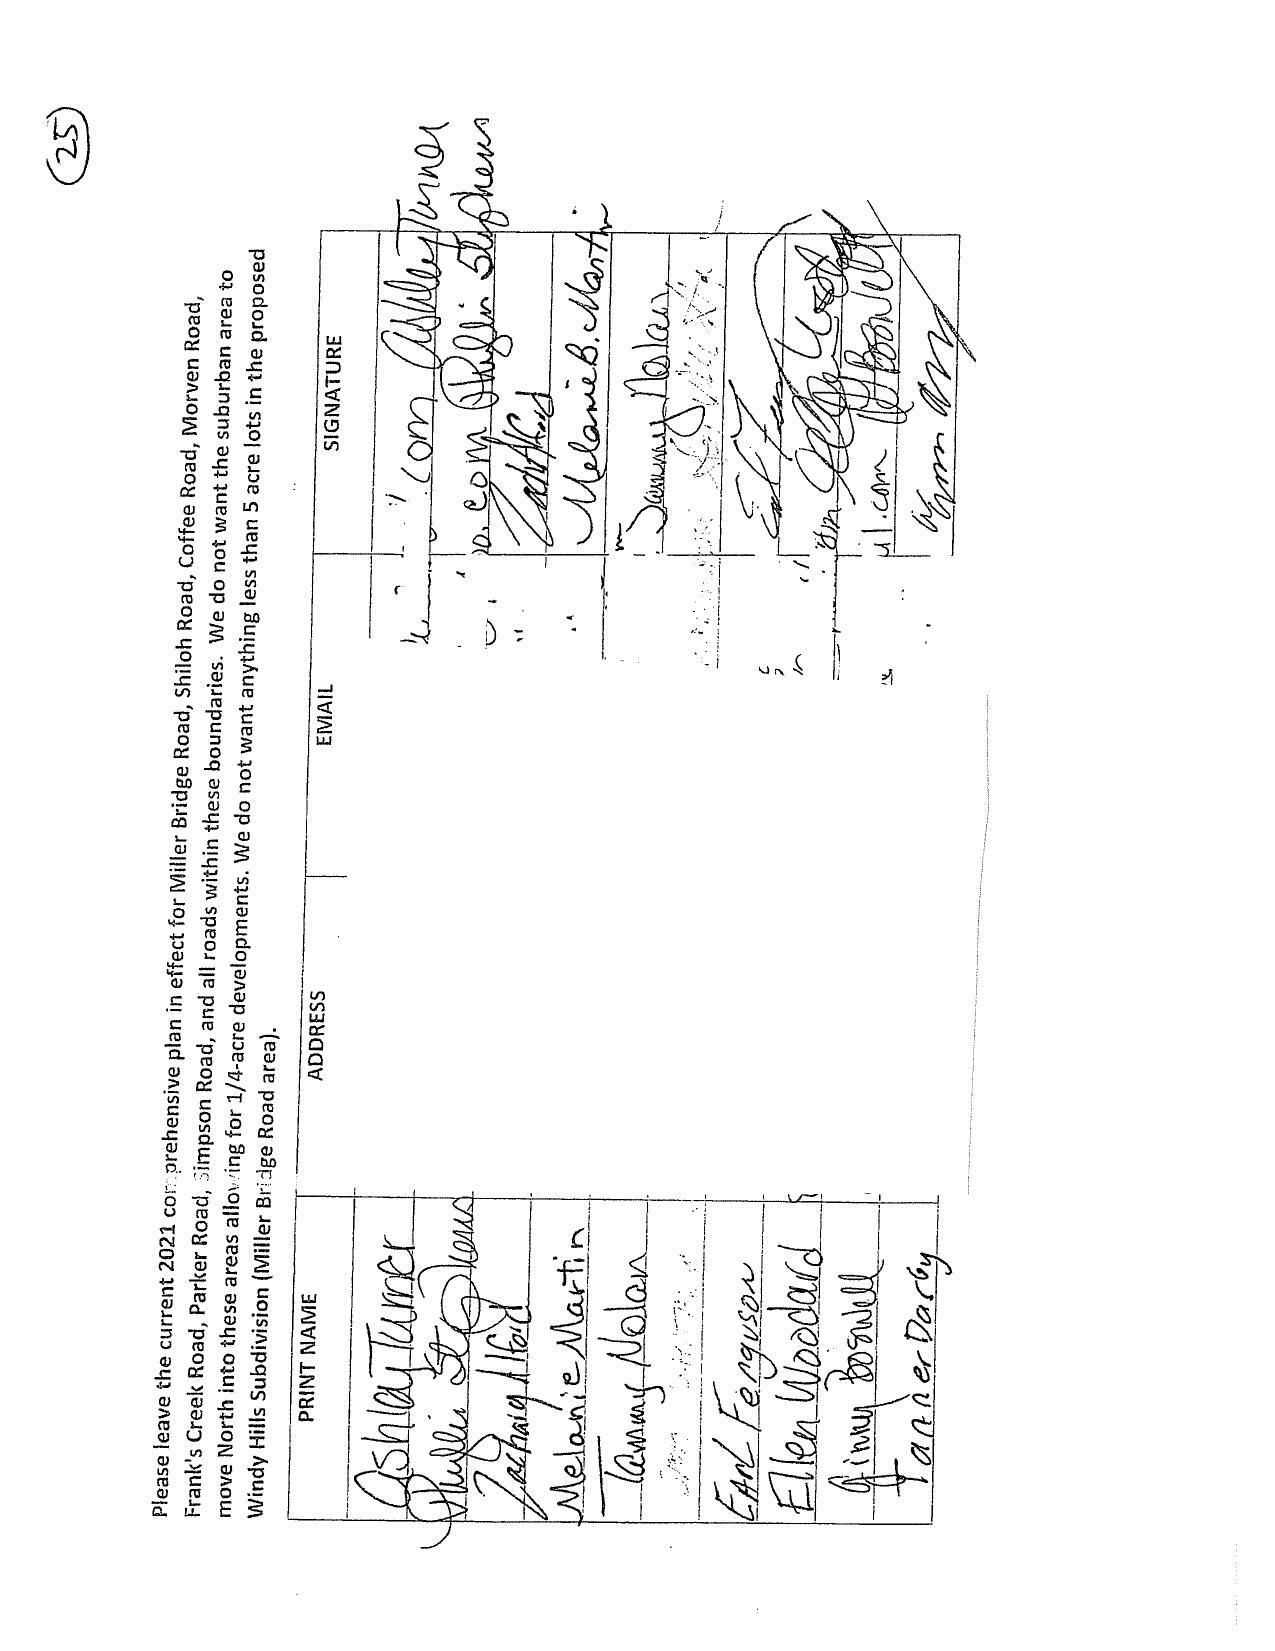 25
Please leave the current 2021 comprehensive plan in effect for Miller Bridge Road, Shiloh Road, Coffee Road, Morven Road,
Frank's Creek Road, Parker Road, Simpson Road, and all roads within these boundaries. We do not want the suburban area to
move North into these areas allowing for 1/4-acre developments. We do not want anything less than 5 acre lots in the proposed
Windy Hills Subdivision (Miller Bridge Road area).
PRINT NAME ADDRESS EMAIL SIGNATURE
Ashley Turner .com Ashley Turner
Phyllis Stephens .com Phyllis Stephens
Zachary Alford Zach Alford
Melanie Martin Melanie B. Martin
Tammy Nolan Tammy Nolan
Earl Ferguson
Ellen Woodard
Ginny Boswell .com Boswell
Tanner Darby